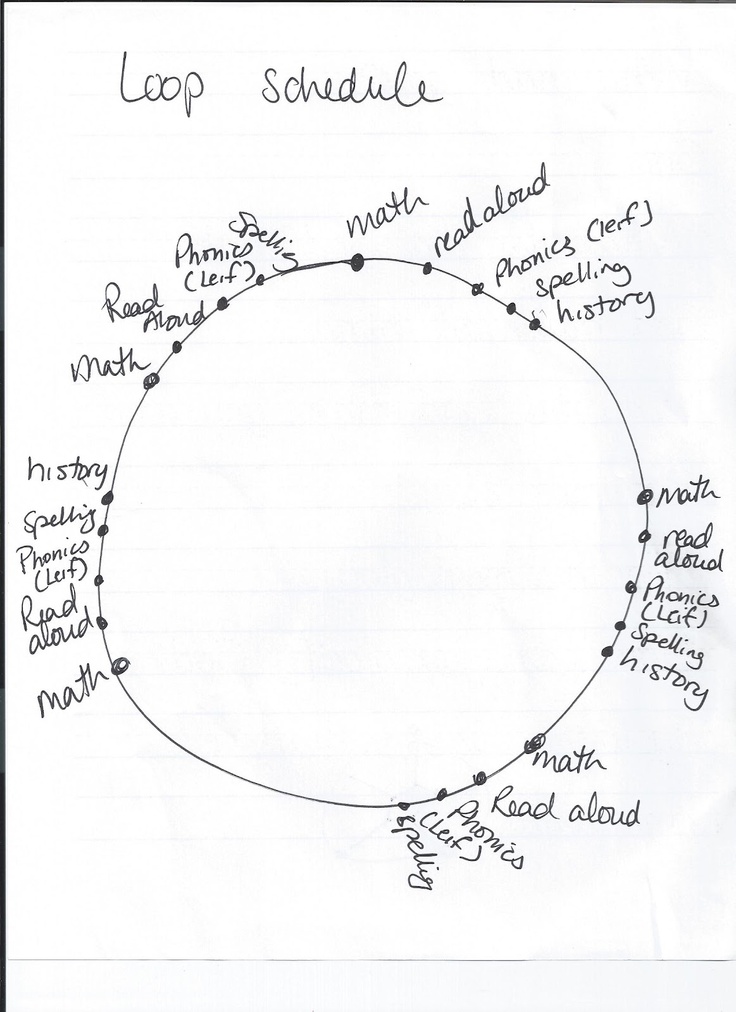 Loop schedule
math
read aloud
Phonics (leif)
spelling
history
math
read
aloud
Phonics
(Leif)
Spelling
history
math
Read aloud
Phonics
(Leif)
spelling
math
Read
aloud
Phonics
(Leif)
Spelling
history
Math
Read
Aloud
Phonics
(Leif)
Spelling